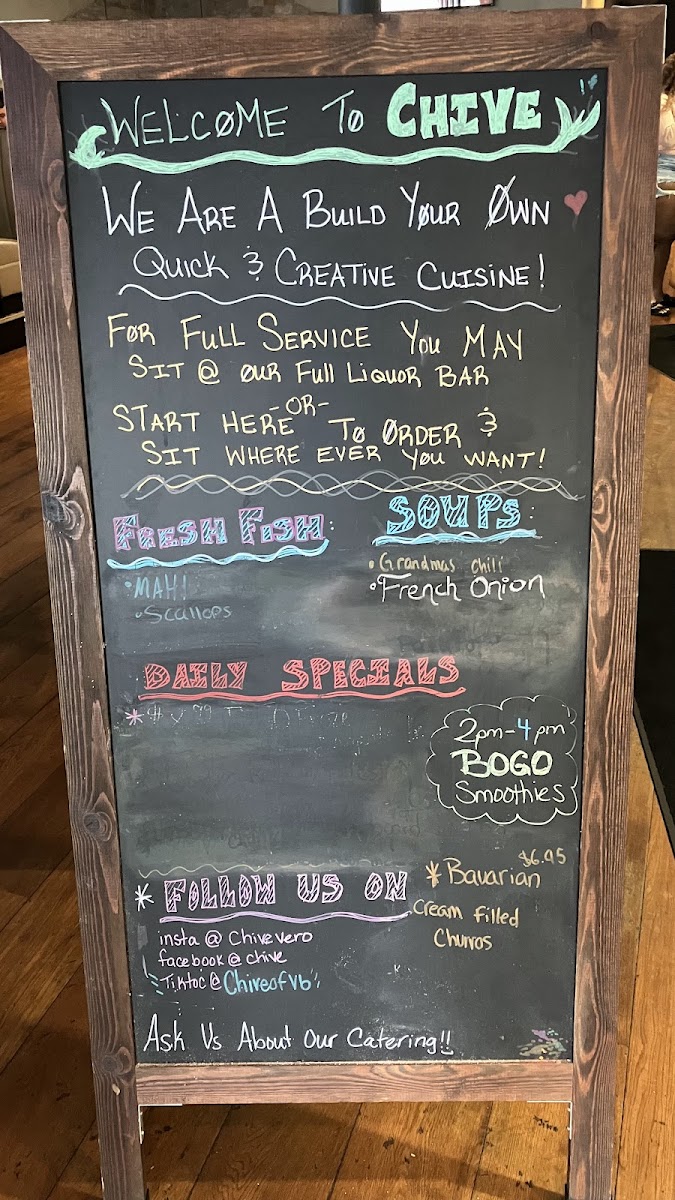 WELCOME TO CHIVE
WE ARE A BUILD YOUR OWN
QUICK & CREATIVE CUISINE!
FOR FULL SERVICE YOU MAY
SIT @ OUR FULL LIQUOR BAR
-OR-
START HERE TO ORDER &
SIT WHERE EVER YOU WANT!
FRESH FISH:
SOUPS:
•MAHI
•Scallops
•Grandmas chili
•French Onion
DAILY SPECIALS
2pm-4pm
BOGO
Smoothies
* FOLLOW US ON
insta @ Chivevero
facebook @ chive
Tiktoc @ Chiveofvb
$6.95
* Bavarian
Cream filled
Churros
Ask Us About Our Catering!!